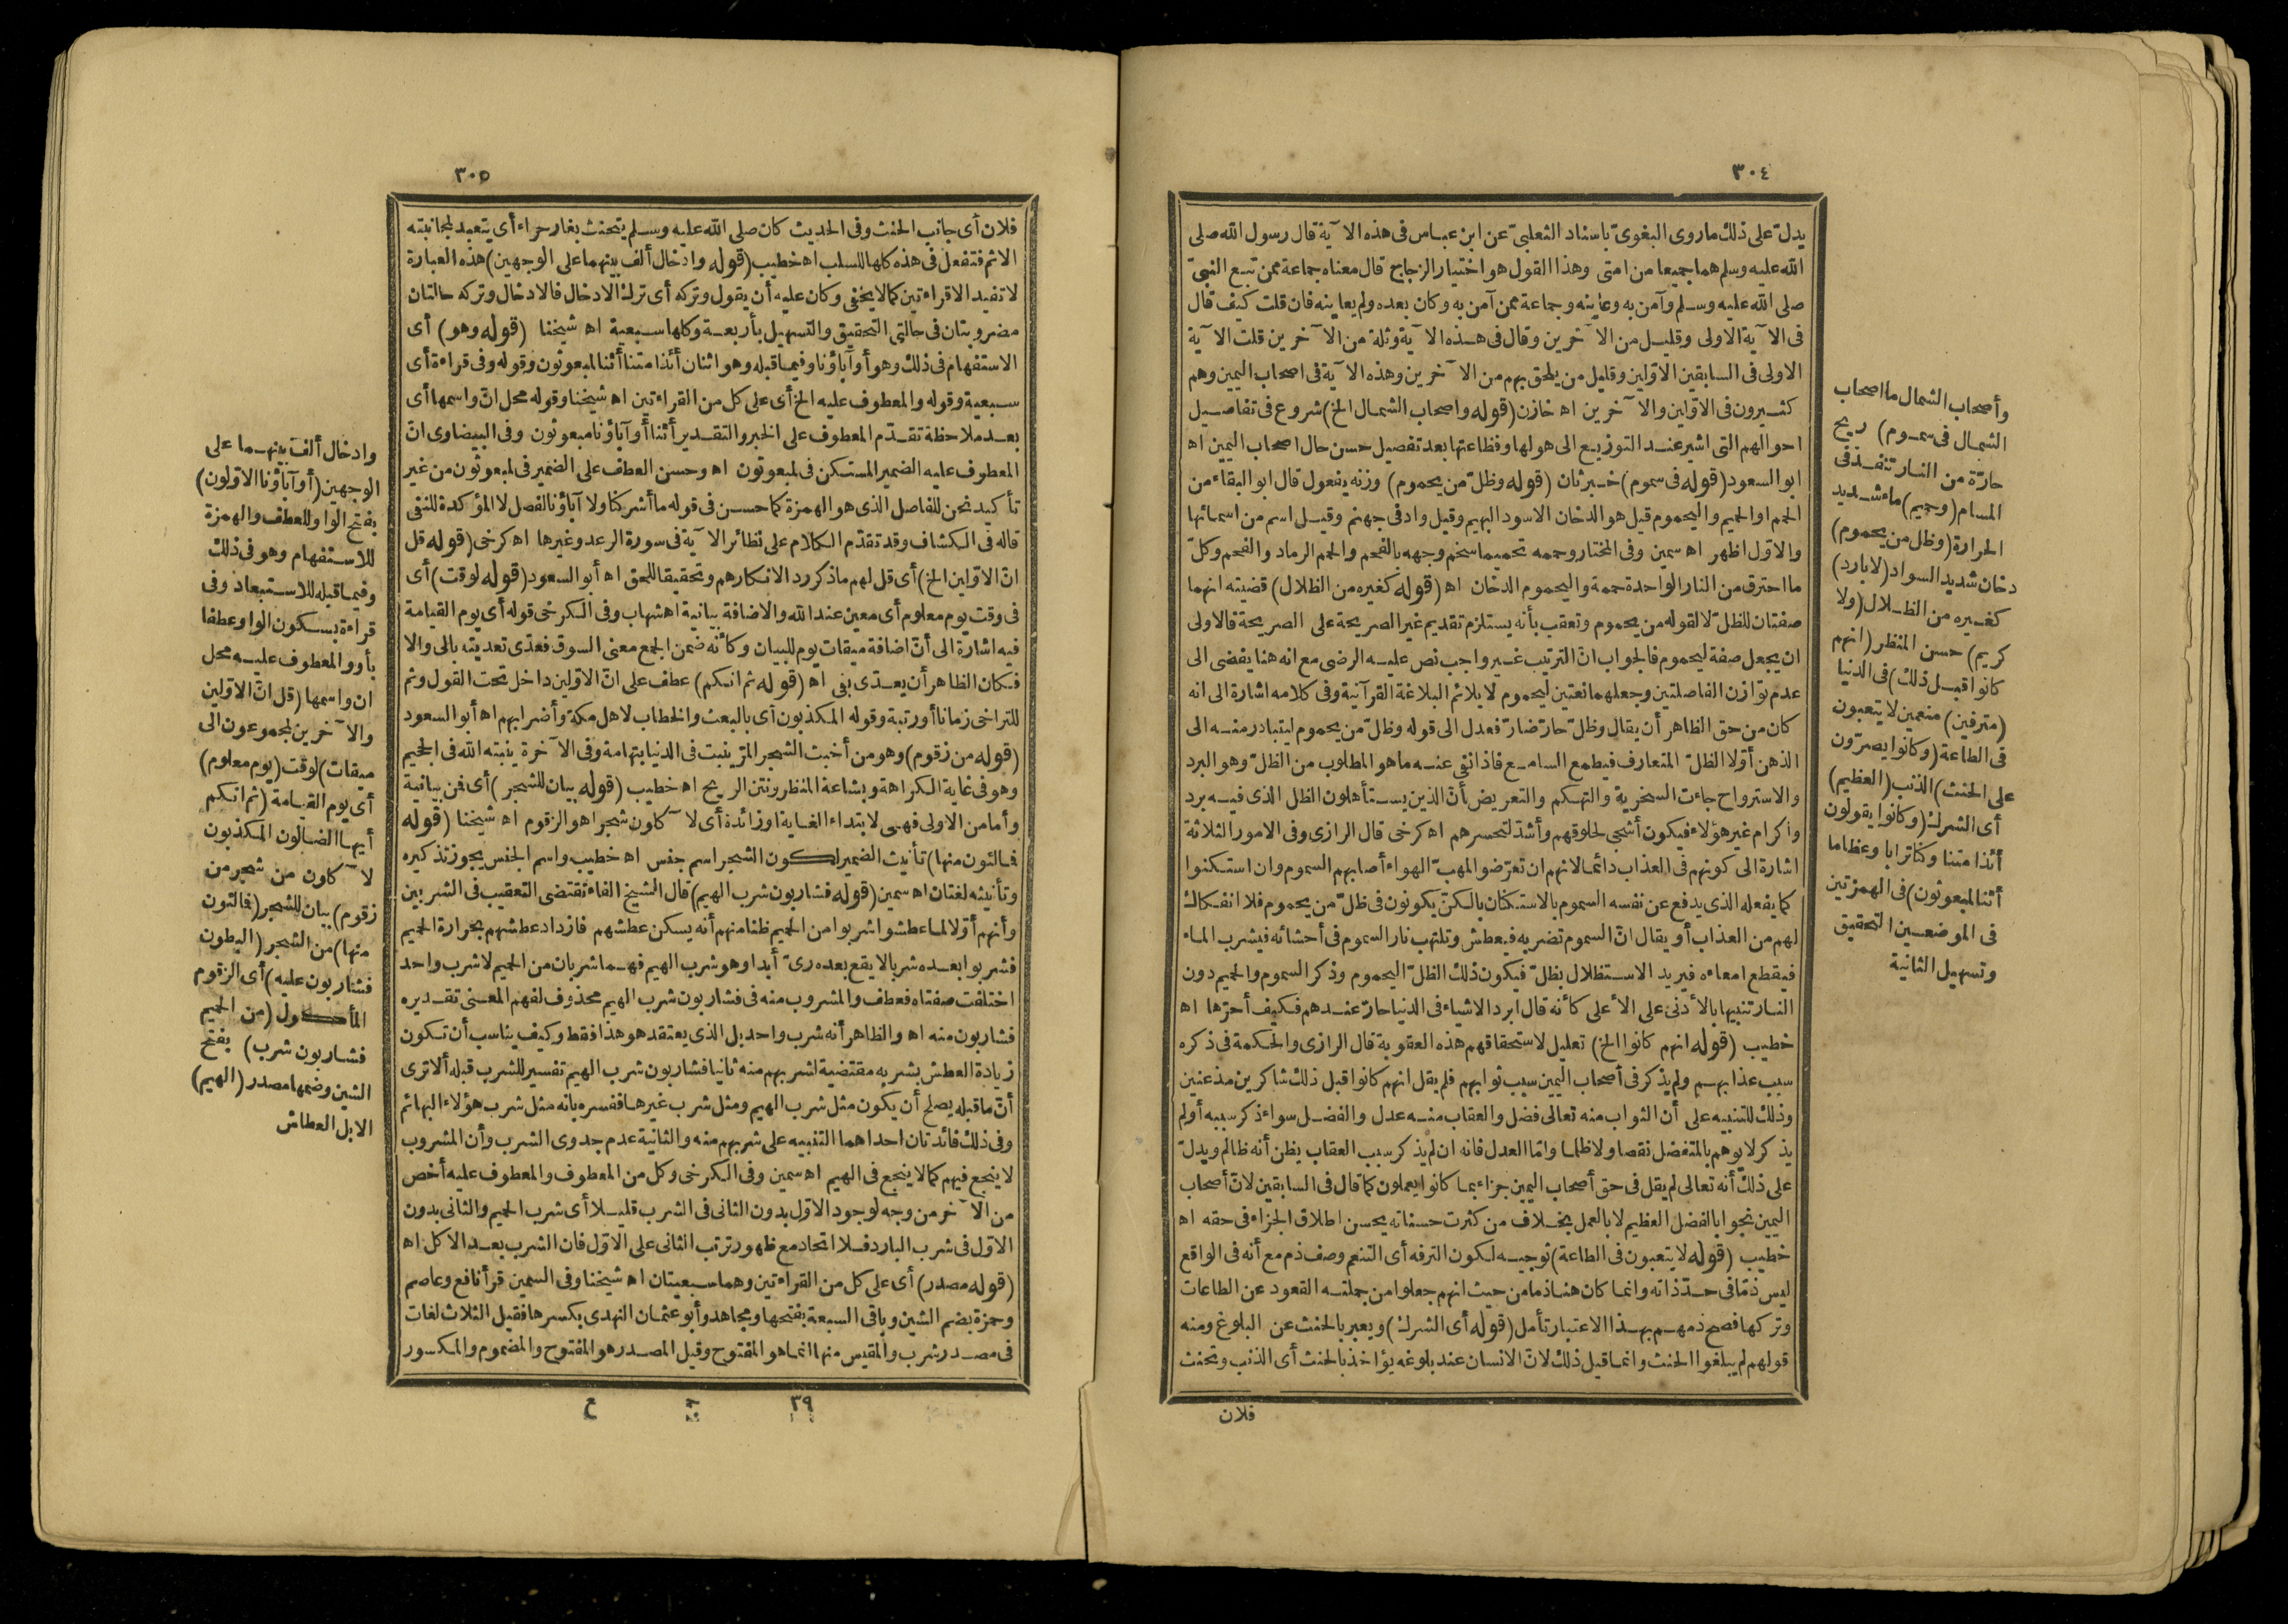 ٣٠٤
يدلّ على ذلك ماروى البغوىّ باسناد الثعلبىّ عن ابن عباس فى هذه الآية قال رسول الله صلى
الله عليه وسلم هما جميعا من امتى وهذا القول هو اختيار الزجاج قال معناه جماعة ممن تبع النبىّ
صلى الله عليه وسلم وآمن به وعاينه وجماعة ممن آمن به وكان بعده ولم يعاينه فان قلت كيف قال
فى الآية الاولى وقليل من الآخرين وقال فى هذه الآية وثلة من الآخرين قلت الآية
الاولى فى السابقين الاوّلين وقليل من يلحق بهم من الآخرين وهذه الآية فى اصحاب اليمين وهم
كثيرون فى الاوّلين والآخرين اه خازن (قوله واصحاب الشمال الخ) شروع فى تفاصيل
احوالهم التى اشير عند التوزيع الى هولها وفظاعتها بعد تفصيل حسن حال اصحاب اليمين اه
ابو السعود (قوله فى سموم) خبر ثان (قوله وظلّ من يحموم) وزنه يفعول قال ابو البقاء من
الحمم او الحميم واليحموم قيل هو الدخان الاسود البهيم وقيل واد فى جهنم وقيل اسم من اسمائها
والاوّل اظهر اه سمين وفى المختار وحممه تحميما سخم وجهه بالفحم والحمم الرماد والفحم وكلّ
ما احترق من النار الواحدة حممة واليحموم الدخان اه (قوله كغيره من الظلال) قضيته انهما
صفتان للظلّ لا لقوله من يحموم وتعقب بأنه يستلزم تقديم غير الصريحة على الصريحة فالاولى
ان يجعل صفة ليحموم فالجواب انّ الترتيب غير واجب نص عليه الرضى مع انه هنا يفضى الى
عدم توازن الفاصلتين وجعلهما نعتين ليحموم لا يلائم البلاغة القرآنية وفى كلامه اشارة الى انه
كان من حق الظاهر أن يقال وظلّ حارّ ضارّ فعدل الى قوله وظلّ من يحموم ليتبادر منه الى
الذهن أوّلا الظلّ المتعارف فيطمع السامع فاذا نفى عنه ما هو المطلوب من الظلّ وهو البرد
والاسترواح جاءت السخرية والتهكم والتعريض بأنّ الذين يستأهلون الظل الذى فيه برد
واكرام غير هؤلاء فيكون أشجى لحلوقهم وأشدّ لتحسرهم اه كرخى قال الرازى وفى الامور الثلاثة
اشارة الى كونهم فى العذاب دائما لانهم ان تعرّضوا لمهبّ الهواء أصابهم السموم وان استكنوا
كما يفعله الذى يدفع عن نفسه السموم بالاستكنان بالكنّ يكونون فى ظلّ من يحموم فلا انفكاك
لهم من العذاب أو يقال انّ السموم تضربه فيعطش وتلتهب نار السموم فى أحشائه فيشرب الماء
فيقطع امعاءه فيريد الاستظلال بظلّ فيكون ذلك الظلّ اليحموم وذكر السموم والحميم دون
النار تنبيها بالأدنى على الأعلى كأنه قال ابرد الاشياء فى الدنيا حارّ عندهم فكيف أحرّها اه
خطيب (قوله انهم كانوا الخ) تعليل لاستحقاقهم هذه العقوبة قال الرازى والحكمة فى ذكره
سبب عذابهم ولم يذكر فى أصحاب اليمين سبب ثوابهم فلم يقل انهم كانوا قبل ذلك شاكرين مذعنين
وذلك للتنبيه على أن الثواب منه تعالى فضل والعقاب منه عدل والفضل سواء ذكر سببه أو لم
يذكر لا يوهم بالمتفضل نقصا ولا ظلما وامّا العدل فانه ان لم يذكر سبب العقاب يظن أنه ظالم ويدلّ
على ذلك أنه تعالى لم يقل فى حق أصحاب اليمين جزاء بما كانوا يعملون كما قال فى السابقين لانّ أصحاب
اليمين نجوا بالفضل العظيم لا بالعمل بخلاف من كثرت حسناته يحسن اطلاق الجزاء فى حقه اه
خطيب (قوله لا يتعبون فى الطاعة) توجيه لكون الترفه أى التنعم وصف ذم مع أنه فى الواقع
ليس ذمّا فى حدّ ذاته وانما كان هنا ذما من حيث انهم جعلوا من جملته القعود عن الطاعات
وتركها فصح ذمهم بهذا الاعتبار تأمل (قوله أى الشرك) ويعبر بالحنث عن البلوغ ومنه
قولهم لم يبلغوا الحنث وانما قيل ذلك لانّ الانسان عند بلوغه يؤاخذ بالحنث أى الذنب وتحنث
فلان
وأصحاب الشمال ما اصحاب
الشمال فى سموم) ريح
حارّة من النار تنفذ فى
المسام (وحميم) ماء شديد
الحرارة (وظل من يحموم)
دخان شديد السواد (لا بارد)
كغيره من الظلال (ولا
كريم) حسن المنظر (انهم
كانوا قبل ذلك) فى الدنيا
(مترفين) منعمين لا يتعبون
فى الطاعة (وكانوا يصرّون
على الحنث) الذنب (العظيم)
أى الشرك (وكانوا يقولون
أئذا متنا وكنا ترابا وعظاما
أئنا لمبعوثون) فى الهمزتين
فى الموضعين التحقيق
وتسهيل الثانية
٣٠٥
فلان أى جانب الحنث وفى الحديث كان صلى الله عليه وسلم يتحنث بغار حراء أى يتعبد لمجانبته
الاثم فتفعل فى هذه كلها للسلب اه خطيب (قوله وادخال ألف بينهما على الوجهين) هذه العبارة
لا تفيد الا قراءتين كما لا يخفى وكان عليه أن يقول وتركه أى ترك الادخال فالادخال وتركه حالتان
مضروبتان فى حالتى التحقيق والتسهيل بأربعة وكلها سبعية اه شيخنا (قوله وهو) أى
الاستفهام فى ذلك وهو أو آباؤنا وفيما قبله وهو اثنان أئذا متنا أئنا لمبعوثون وقوله وفى قراءة أى
سبعية وقوله والمعطوف عليه الخ أى على كل من القراءتين اه شيخنا وقوله محل انّ واسمها أى
بعد ملاحظة تقدّم المعطوف على الخبر والتقدير أئنا أو آباؤنا مبعوثون وفى البيضاوى انّ
المعطوف عليه الضمير المستكن فى لمبعوثون اه وحسن العطف على الضمير فى لمبعوثون من غير
تأكيد بنحن للفاصل الذى هو الهمزة كما حسن فى قوله ما أشركنا ولا آباؤنا لفصل لا المؤكدة للنفى
قاله فى الكشاف وقد تقدّم الكلام على نظائر الآية فى سورة الرعد وغيرها اه كرخى (قوله قل
انّ الاوّلين الخ) أى قل لهم ماذكر رد الانكارهم وتحقيقا للحق اه أبو السعود (قوله لوقت) أى
فى وقت يوم معلوم أى معين عند الله والاضافة بيانية اه شهاب وفى الكرخى قوله أى يوم القيامة
فيه اشارة الى أنّ اضافة ميقات يوم للبيان وكأنه ضمن الجمع معنى السوق فعدّى تعديته بالى والا
فكان الظاهر أن يعدّى بفى اه (قوله ثم انكم) عطف على انّ الاوّلين داخل تحت القول وثم
للتراخى زمانا أو رتبة وقوله المكذبون أى بالبعث والخطاب لاهل مكة وأضرابهم اه أبو السعود
(قوله من زقوم) وهو من أخبث الشجر المرّ ينبت فى الدنيا بتهامة وفى الآخرة ينبته الله فى الجحيم
وهو فى غاية الكراهة وبشاعة المنظر ونتن الريح اه خطيب (قوله بيان للشجر) أى فمن بيانية
وأما من الاولى فهى لابتداء الغاية او زائدة أى لآكلون شجرا هو الزقوم اه شيخنا (قوله
فمالئون منها) تأنيث الضمير لكون الشجر اسم جنس اه خطيب واسم الجنس يجوز تذكيره
وتأنيثه لغتان اه سمين (قوله فشاربون شرب الهيم) قال الشيخ الفاء تقتضى التعقيب فى الشربين
وأنهم أوّلا لما عطشوا شربوا من الحميم ظنا منهم أنه يسكن عطشهم فازداد عطشهم بحرارة الحميم
فشربوا بعده شربا لا يقع بعده رىّ أبدا وهو شرب الهيم فهما شربان من الحميم لا شرب واحد
اختلفت صفتاه فعطف والمشروب منه فى فشاربون شرب الهيم محذوف لفهم المعنى تقديره
فشاربون منه اه والظاهر أنه شرب واحد بل الذى يعتقد هو هذا فقط وكيف يناسب أن تكون
زيادة العطش بشربه مقتضية لشربهم منه ثانيا فشاربون شرب الهيم تفسير للشرب قبله ألا ترى
أنّ ما قبله يصلح أن يكون مثل شرب الهيم ومثل شرب غيرها ففسره بانه مثل شرب هؤلاء البهائم
وفى ذلك فائدتان احداهما التنبيه على شربهم منه والثانية عدم جدوى الشرب وأن المشروب
لا ينجع فيهم كما لا ينجع فى الهيم اه سمين وفى الكرخى وكل من المعطوف والمعطوف عليه أخص
من الآخر من وجه لوجود الاوّل بدون الثانى فى الشرب قليلا أى شرب الحميم والثانى بدون
الاوّل فى شرب البارد فلا اتحاد مع ظهور ترتب الثانى على الاوّل فان الشرب بعد الاكل اه
(قوله مصدر) أى على كل من القراءتين وهما سبعيتان اه شيخنا وفى السمين قرأ نافع وعاصم
وحمزة بضم الشين وباقى السبعة بفتحها ومجاهد وأبو عثمان النهدى بكسرها فقيل الثلاث لغات
فى مصدر شرب والمقيس منها انما هو المفتوح وقيل المصدر هو المفتوح والمضموم والمكسور
٣٩
ع
وادخال ألف بينهما على
الوجهين (أو آباؤنا الاوّلون)
بفتح الواو للعطف والهمزة
للاستفهام وهو فى ذلك
وفيما قبله للاستبعاد وفى
قراءة بسكون الواو عطفا
بأو والمعطوف عليه محل
ان واسمها (قل انّ الاوّلين
والآخرين لمجموعون الى
ميقات) لوقت (يوم معلوم)
أى يوم القيامة (ثم انكم
أيها الضالون المكذبون
لآكلون من شجر من
زقوم) بيان للشجر (فمالئون
منها) من الشجر (البطون
فشاربون عليه) أى الزقوم
المأكول (من الحميم
فشاربون شرب) بفتح
الشين وضمها مصدر (الهيم)
الابل العطاش